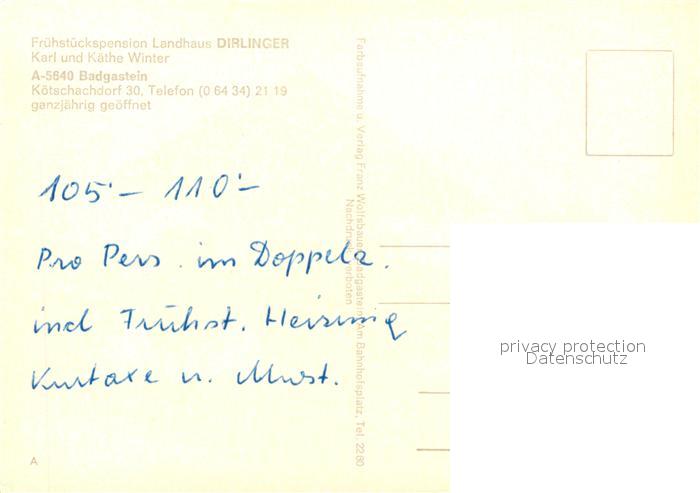 Frühstückspension Landhaus DIRLINGER
Karl und Käthe Winter
A-5640 Badgastein
Kötschachdorf 30, Telefon (0 64 34) 21 19
ganzjährig geöffnet
105'— 110'—
Pro Pers. im Doppelz.
incl Frühst. Heizung
Kurtaxe u. Mwst.
A
Farbaufnahme u. Verlag Franz Wolfsbauer, Badgastein, Am Bahnhofsplatz, Tel. 22 80
Nachdruck verboten
privacy protection
Datenschutz